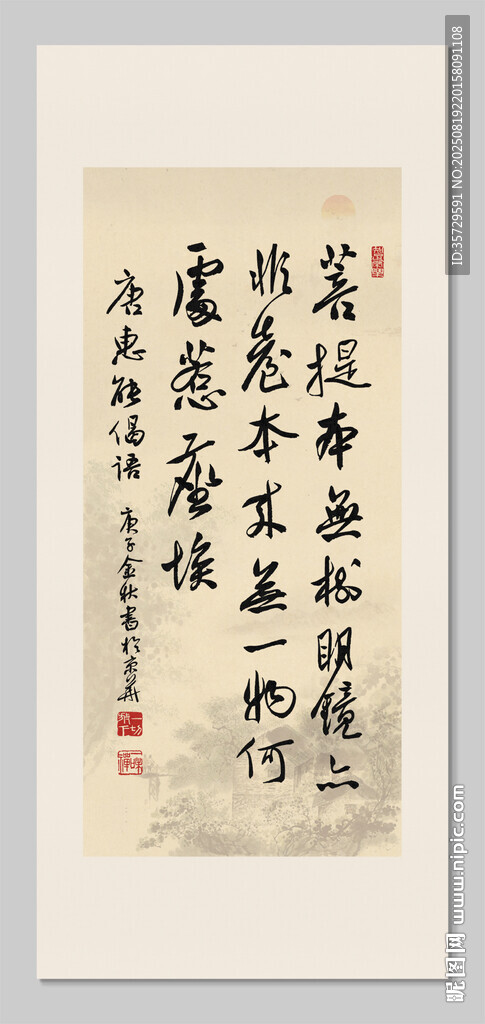 菩提本無樹明鏡亦
非臺本來無一物何
處惹塵埃
唐惠能偈語 庚子金秋書於京華
一切放下
ID:35729591 NO:20250819220158091108
昵图网 www.nipic.com